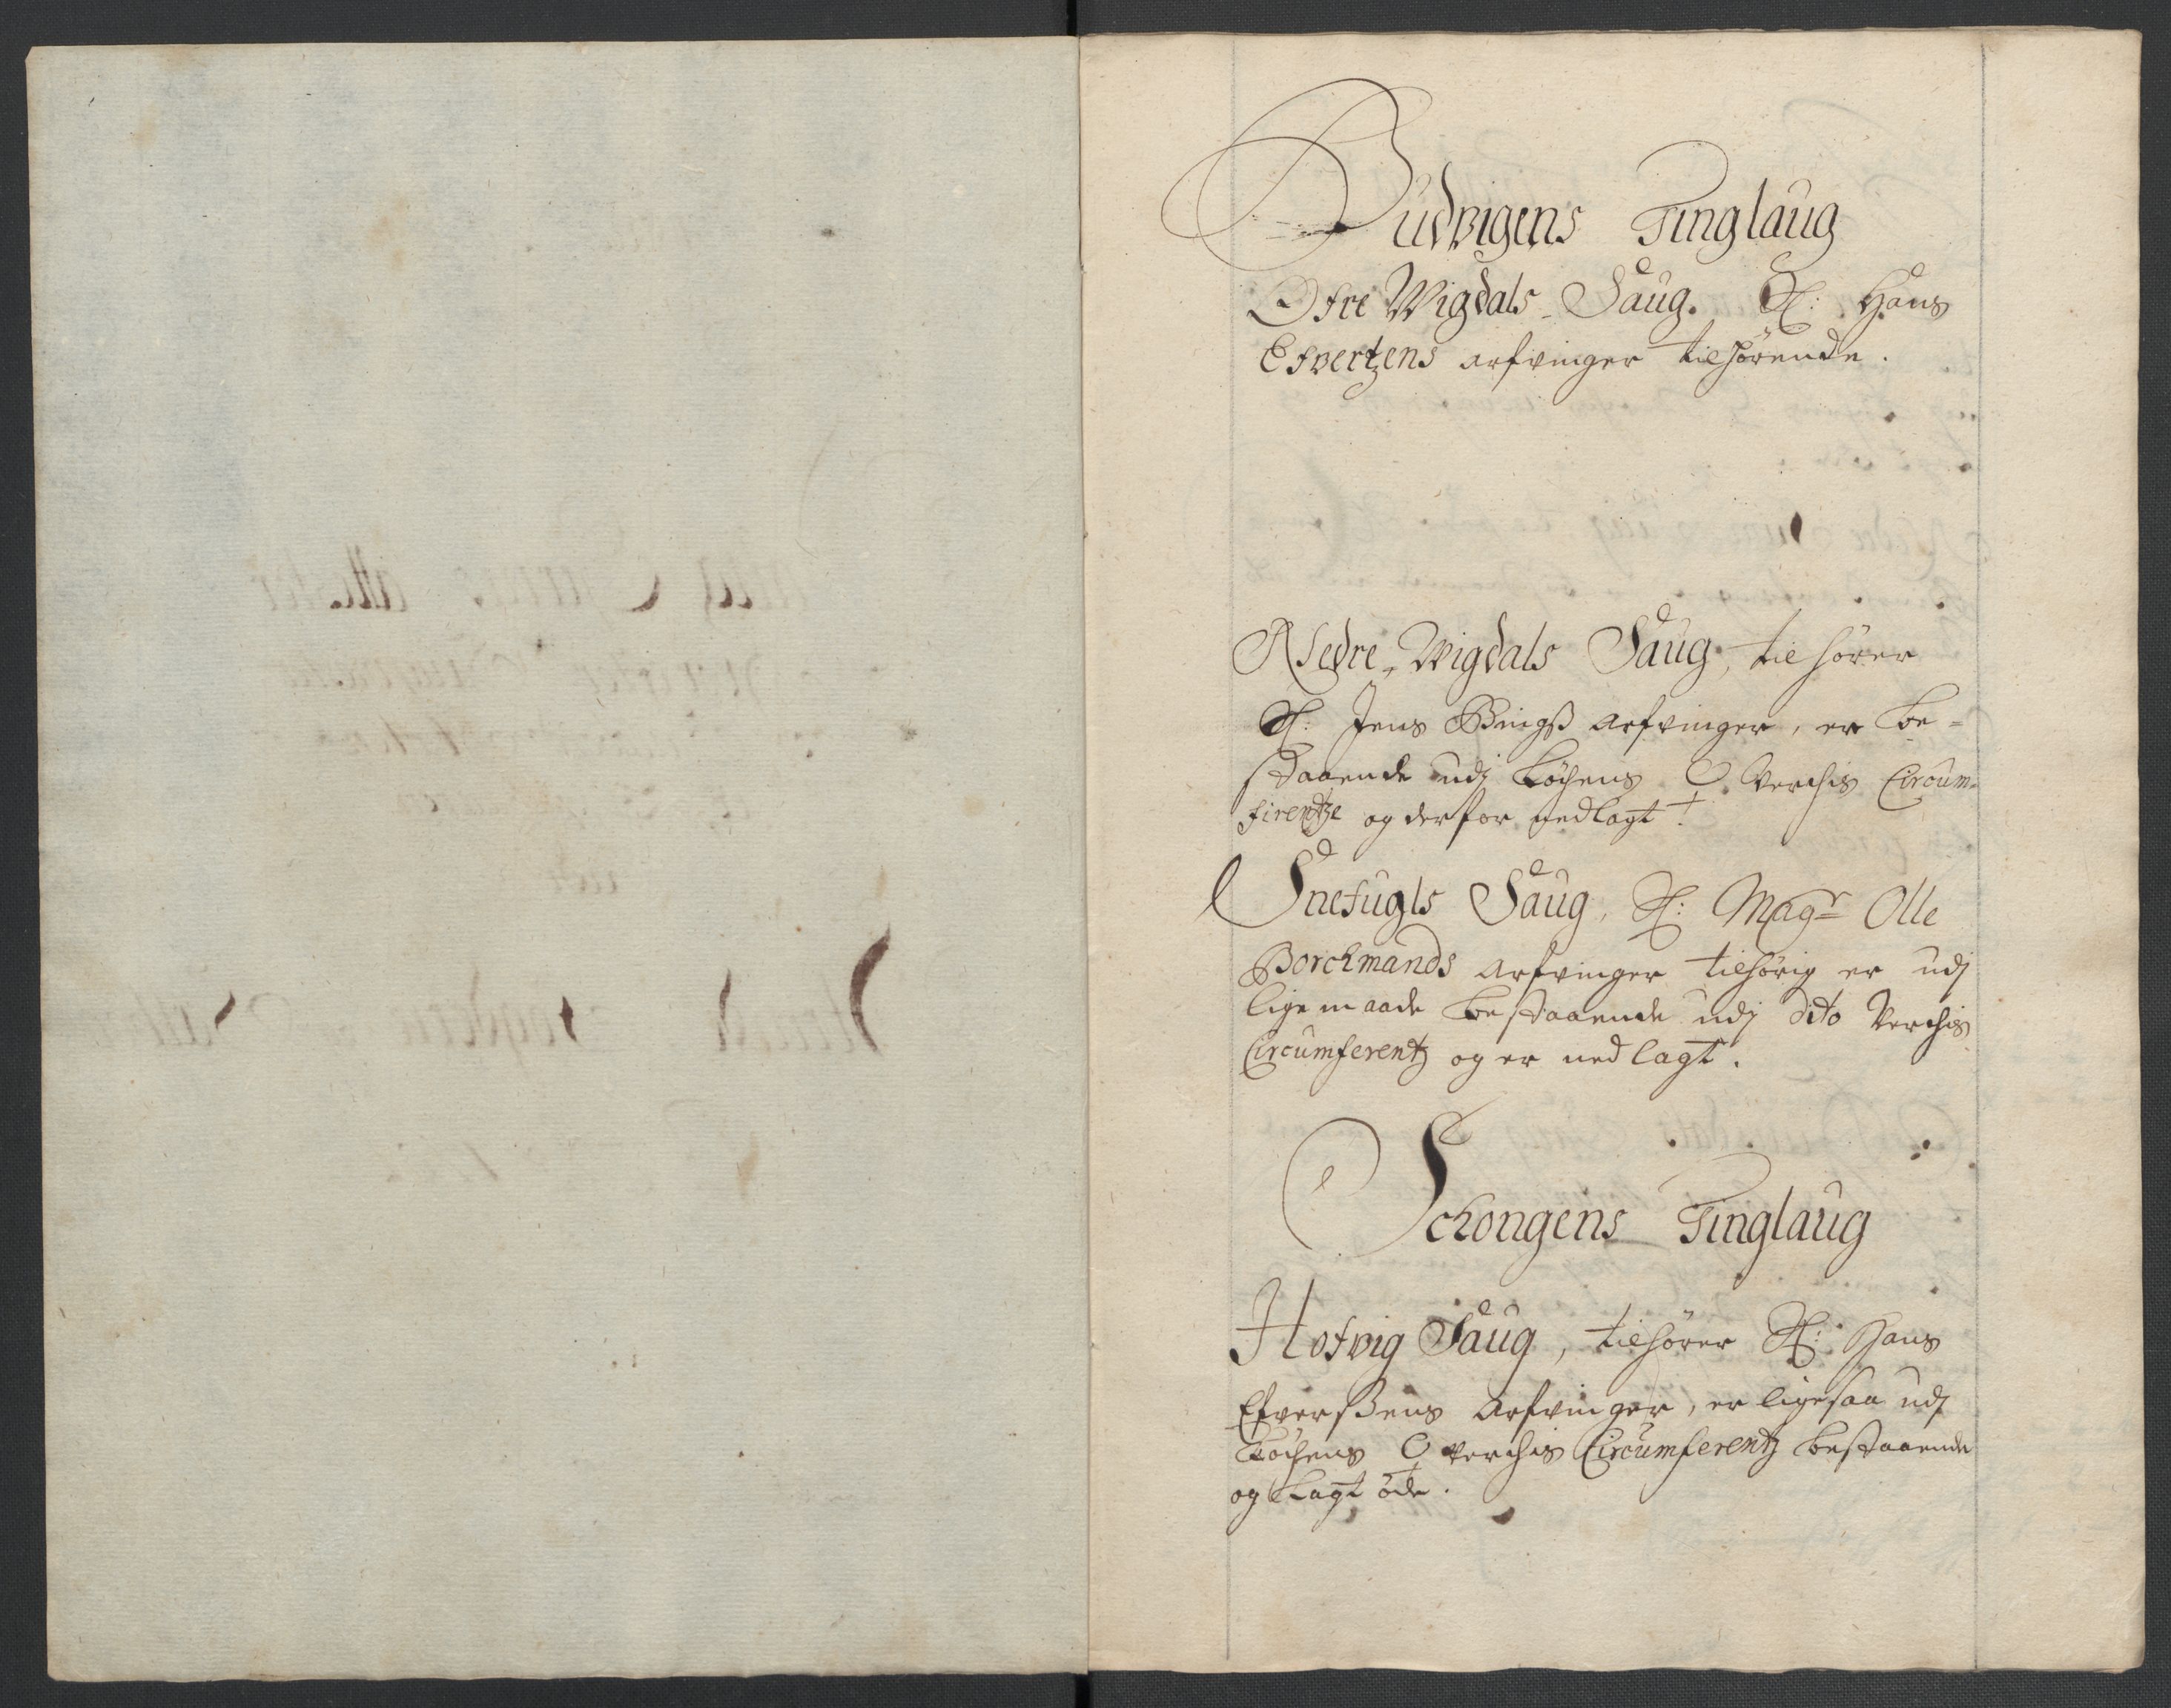 Budvigens Tinglaug
Øfre Wigdals Saug. Sl: Hans
Efvertzens arfvinger tilhørende.
Nedre Wigdals Saug, tilhører
Sl: Jens Bings arfvinger, er be-
staaende udj Løchens C Verchis Circum-
firentze og derfor nedlagt.
Snefugls Saug, Sl: Magr Olle
Borchmands arfvinger tilhørig er udj
lige maade bestaaende udj dito Verchis
Circumferentz og er ned lagt.
Schongens Tinglaug
Hofvig Saug, tilhører Sl: Hans
Efversens Arfvinger, er ligesaa udj
Løchens C verchis Circumferentz bestaaende
og Lagt øde.